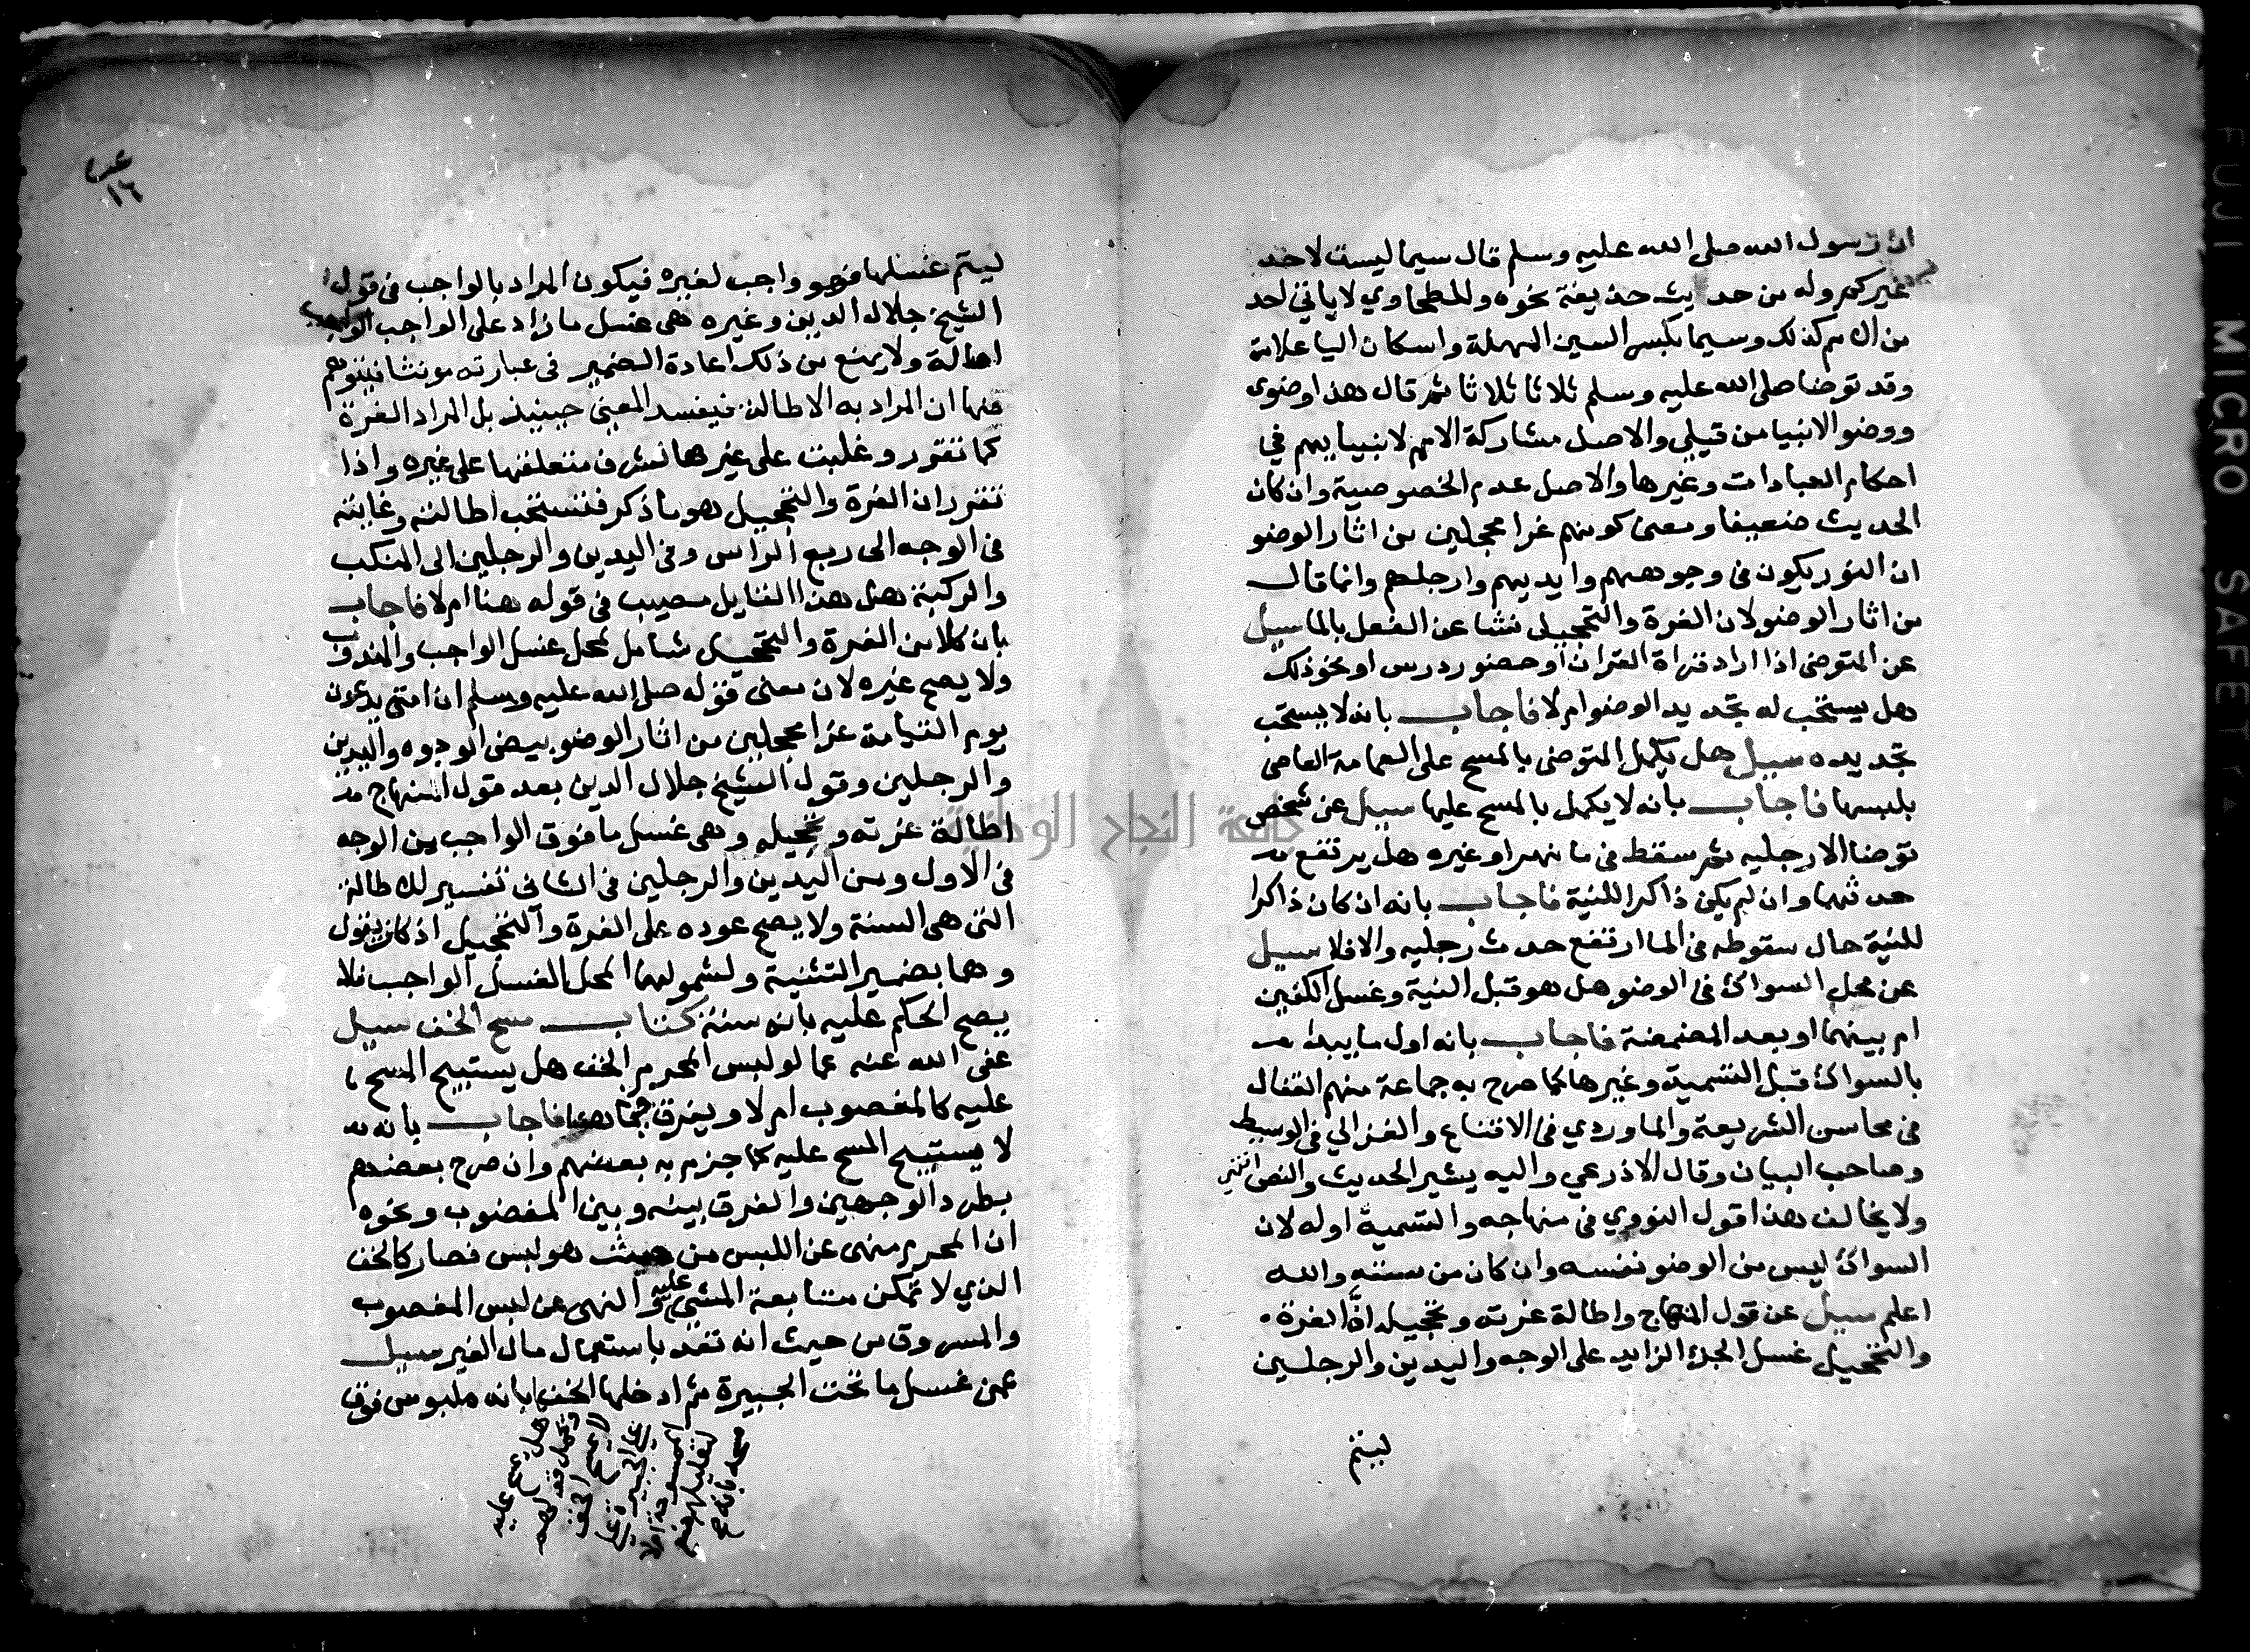 ان رسول الله صلى الله عليه وسلم قال سيما ليست لاحد
غيركم وله من حديث حذيفة نحوه وللطحاوي لا ياتي احد
من الامم كذلك وسيما بكسر السين المهملة واسكان اليا علامة
وقد توضا صلى الله عليه وسلم ثلاثا ثلاثا ثم قال هذا وضوى
ووضو الانبيا من قبلي والاصل مشاركة الامم لانبيايهم في
احكام العبادات وغيرها والاصل عدم الخصوصية وان كان
الحديث ضعيفا ومعنى كونهم غرا محجلين من اثار الوضو
ان النور يكون فى وجوههم وايديهم وارجلهم وانما قال
من اثار الوضو لان الغرة والتحجيل نشا عن الفعل بالما سيل
عن المتوضى اذا اراد قراة القران او حضور درس او نحو ذلك
هل يستحب له تجديد الوضو ام لا فاجاب بانه لا يستحب
تجديده سيل هل يكمل المتوضى بالمسح على العمامة العاصى
بلبسها فاجاب بانه لا يكمل بالمسح عليها سيل عن شخص
توضا الا رجليه ثم سقط فى ما نهر او غيره هل يرتفع
حدثهما وان لم يكن ذاكرا للنية فاجاب بانه ان كان ذاكرا
للنية حال سقوطه فى الما ارتفع حدث رجليه والا فلا سيل
عن محل السواك فى الوضو هل هو قبل النية وغسل الكفين
ام بينهما او بعد المضمضة فاجاب بانه اول ما يبدا
بالسواك قبل التسمية وغيرها كما صرح به جماعة منهم القفال
فى محاسن الشريعة والماوردي فى الاقناع والغزالي فى الوسيط
وصاحب البيان وقال الاذرعي واليه يشير الحديث والنص انتهى
ولا يخالف هذا قول النووي فى منهاجه والتسمية اوله لان
السواك ليس من الوضو نفسه وان كان من سننه والله
اعلم سيل عن قول المنهاج واطالة غرته وتحجيله ان الغرة
والتحجيل غسل الجزء الزايد على الوجه واليدين والرجلين
ليتم
١٦
ليتم غسلها فهو واجب لغيره فيكون المراد بالواجب فى قول
الشيخ جلال الدين وغيره هى غسل ما زاد على الواجب الواجب
اصالة ولا يمنع من ذلك اعادة الضمير فى عبارته مونثا فيتوهم
منها ان المراد به الاطالة فيفسد المعنى حينيذ بل المراد الغرة
كما تقرر وغلبت على غيرها لشرف متعلقها على غيره واذا
تقرر ان الغرة والتحجيل هو ما ذكر فتستحب اطالته وغايته
فى الوجه الى ربع الراس وفى اليدين والرجلين الى المنكب
والركبة هل هذا القايل مصيب فى قوله هنا ام لا فاجاب
بان كلا من الغرة والتحجيل شامل لمحل غسل الواجب والمندوب
ولا يصح غيره لان معنى قوله صلى الله عليه وسلم ان امتي يدعون
يوم القيامة غرا محجلين من اثار الوضو بيض الوجوه واليدين
والرجلين وقول الشيخ جلال الدين بعد قول المنهاج
اطالة غرته وتحجيله وهى غسل ما فوق الواجب من الوجه
فى الاول ومن اليدين والرجلين فى الثانى تفسير للاطالة
التى هى السنة ولا يصح عوده على الغرة والتحجيل اذ كان يقول
وهما بضمير التثنية ولشمولهما لمحل الغسل الواجب فلا
يصح الحكم عليه بانه سنة كتاب مسح الخف سيل
عفى الله عنه عما لو لبس المحرم الخف هل يستبيح المسح
عليه كالمغصوب ام لا ويفرق بينهما فاجاب بانه
لا يستبيح المسح عليه كما جزم به بعضهم وان صرح بعضهم
بطرد الوجهين والفرق بينه وبين المغصوب ونحوه
ان المحرم منهى عن اللبس من حيث هو لبس فصار كالخف
الذي لا تمكن متابعة المشي عليه والنهى عن لبس المغصوب
والمسروق من حيث انه تعد باستعمال مال الغير سيل
عمن غسل ما تحت الجبيرة ثم ادخلها الخف بانه ملبوس فوق